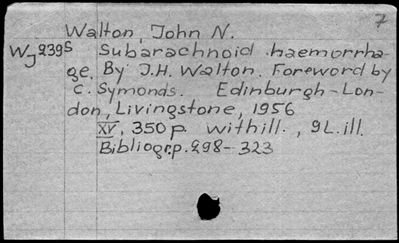 7
Walton, John N.
WJ 239S Subarachnoid haemorrha-
ge. By J.H. Walton. Foreword by
C. Symonds. Edinburgh-Lon-
don, Livingstone, 1956
XV, 350 p. withill., 9 L. ill.
Bibliogr.p. 298-323